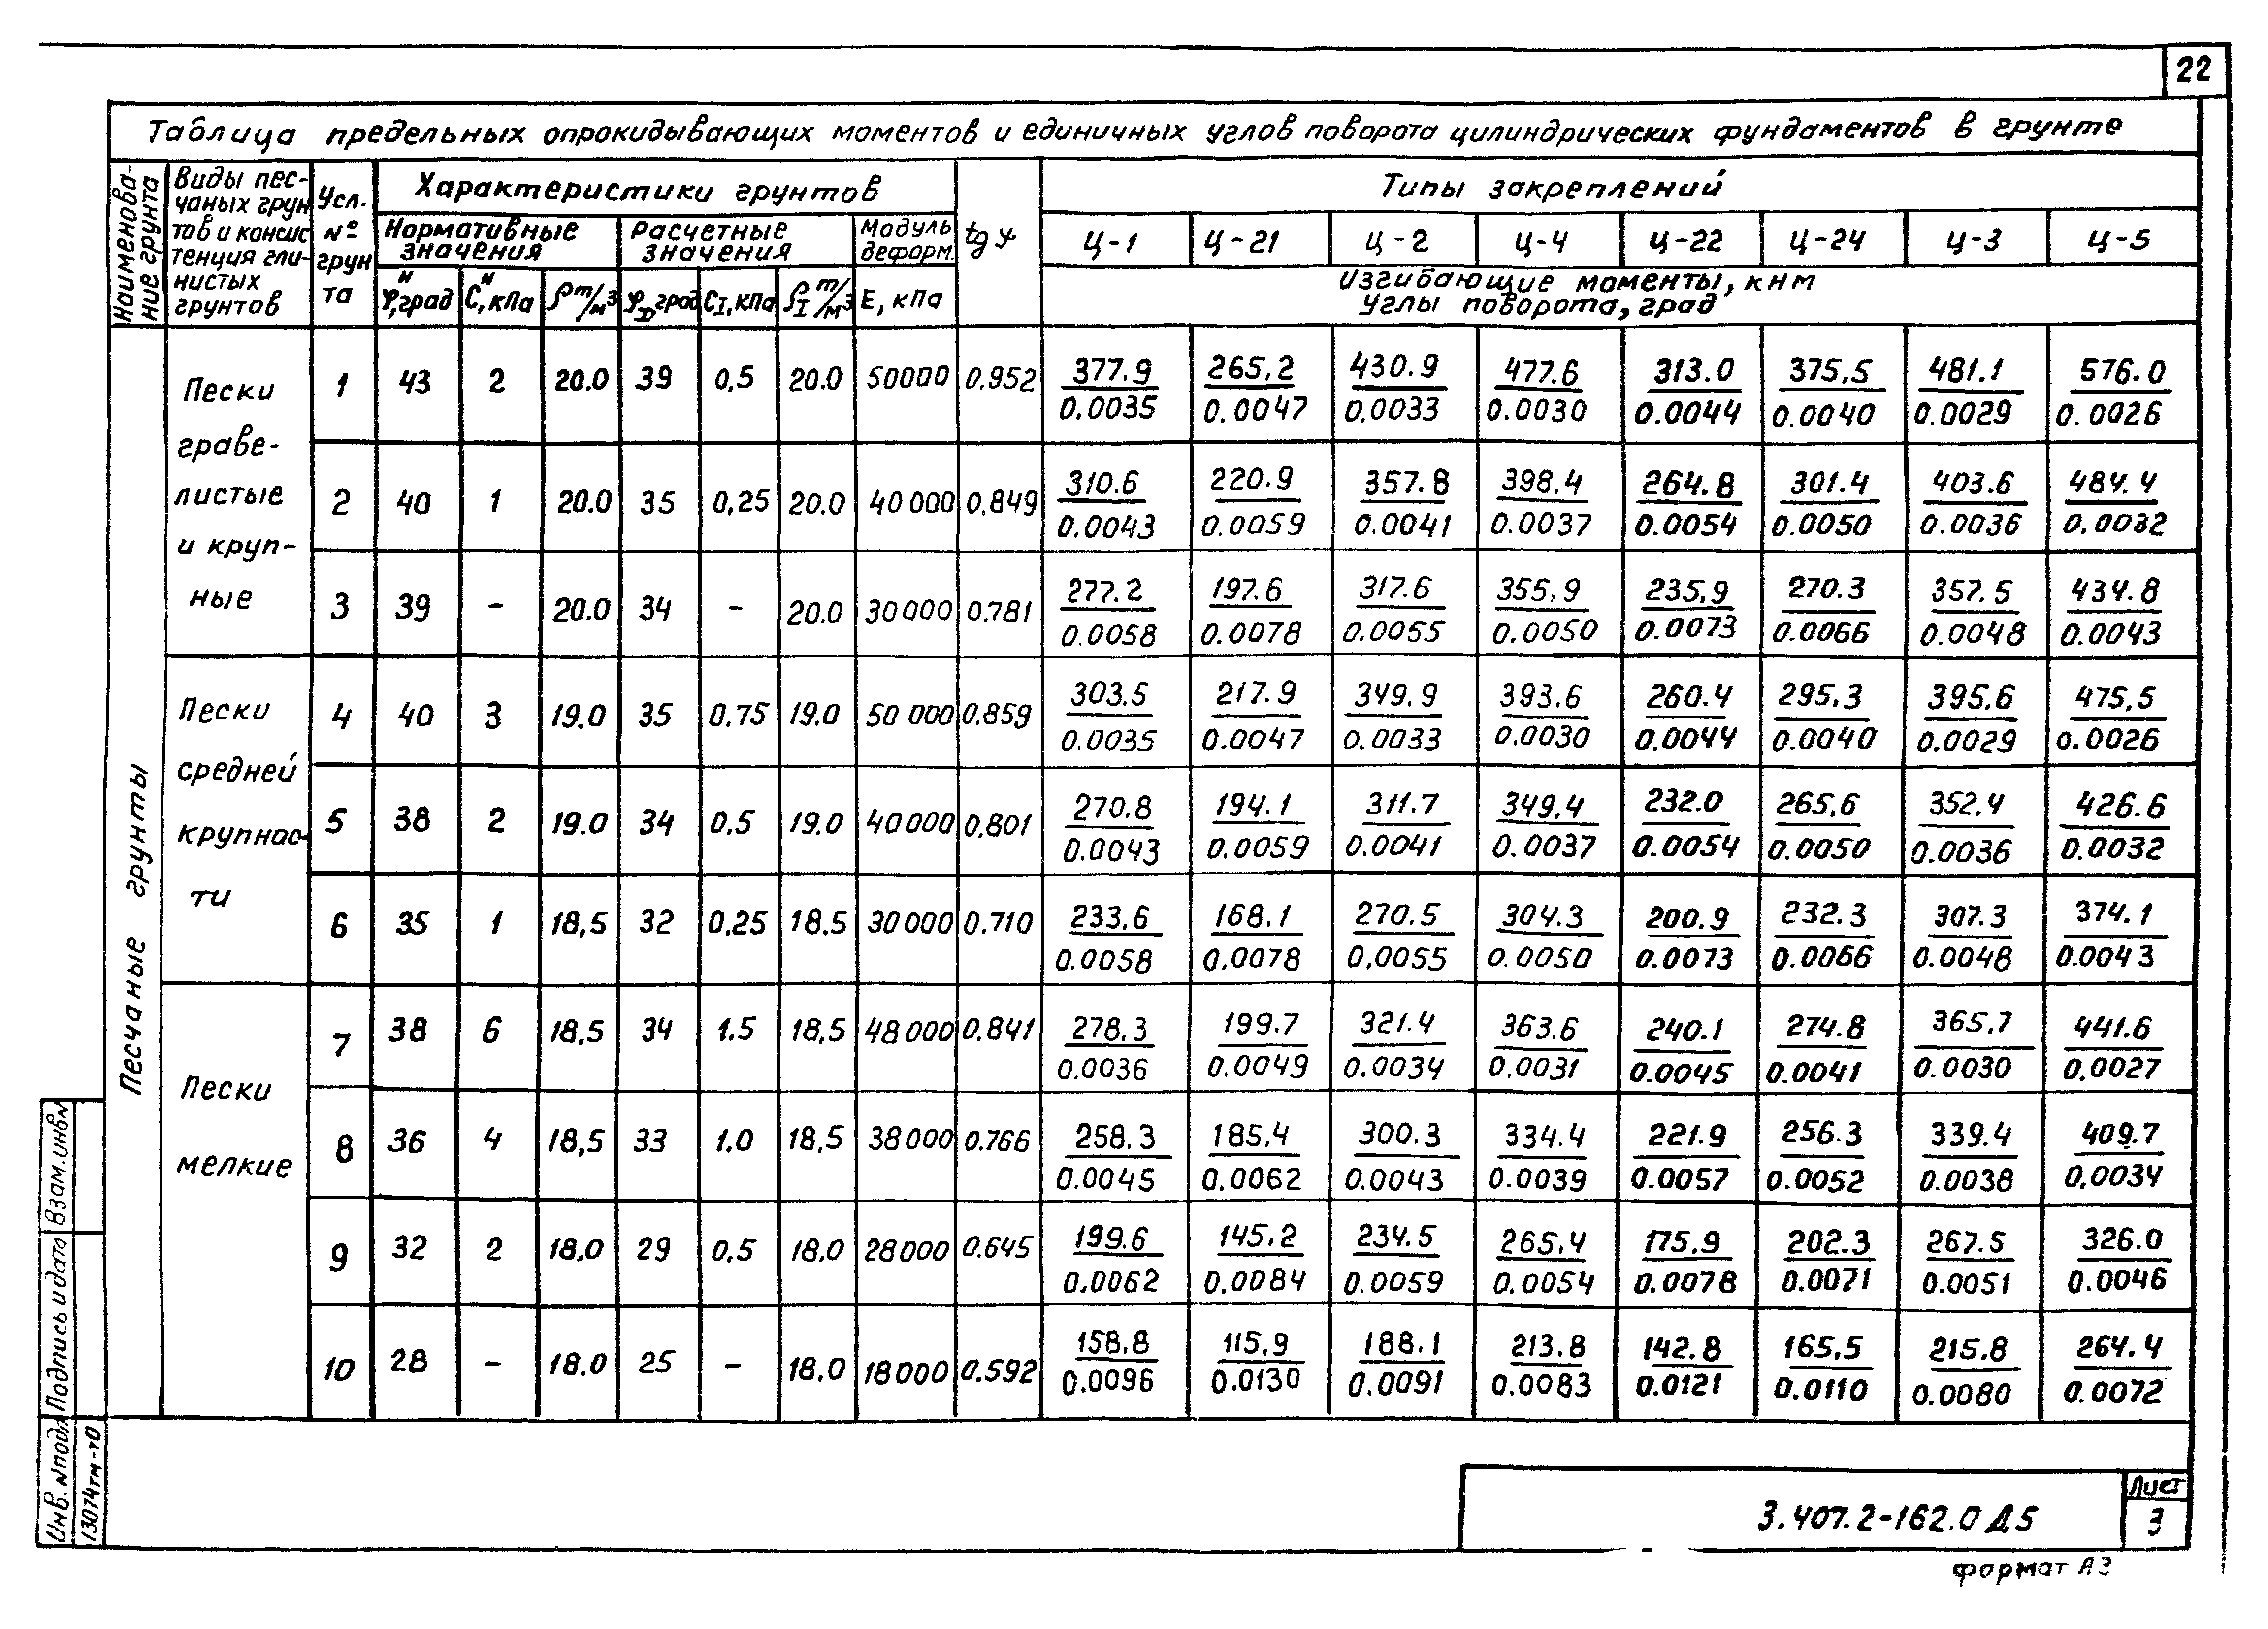 22
Таблица предельных опрокидывающих моментов и единичных углов поворота цилиндрических фундаментов в грунте
Наименова-
ние грунта
Виды пес-
чаных грун
тов и консис
тенция гли-
нистых
грунтов
Усл.
№
грун
та
Характеристики грунтов
Нормативные
значения
Расчетные
значения
Модуль
деформ.
E, кПа
φᴴ, град
Cᴴ, кПа
ρ т/м³
φI, град
CI, кПа
ρI т/м³
tg ψ
Типы закреплений
Ц-1 Ц-21 Ц-2 Ц-4 Ц-22 Ц-24 Ц-3 Ц-5
Изгибающие моменты, кнм
Углы поворота, град
Песчаные грунты
Пески
граве-
листые
и круп-
ные
1 43 2 20.0 39 0,5 20.0 50000 0.952 377.9 265,2 430.9 477.6 313.0 375,5 481.1 576.0
0.0035 0.0047 0,0033 0.0030 0.0044 0.0040 0.0029 0.0026
2 40 1 20.0 35 0,25 20.0 40000 0,849 310.6 220.9 357.8 398.4 264.8 301.4 403.6 484.4
0.0043 0.0059 0.0041 0.0037 0.0054 0.0050 0.0036 0.0032
3 39 - 20.0 34 - 20.0 30000 0.781 277.2 197.6 317.6 355,9 235,9 270.3 357.5 434.8
0.0058 0.0078 0.0055 0.0050 0.0073 0.0066 0.0048 0.0043
Пески
средней
крупнос-
ти
4 40 3 19.0 35 0.75 19.0 50 000 0.859 303.5 217.9 349.9 393.6 260.4 295.3 395.6 475,5
0.0035 0.0047 0.0033 0.0030 0.0044 0.0040 0.0029 0.0026
5 38 2 19.0 34 0,5 19.0 40000 0,801 270.8 194.1 311.7 349,4 232.0 265,6 352,4 426.6
0.0043 0.0059 0.0041 0.0037 0.0054 0.0050 0.0036 0.0032
6 35 1 18,5 32 0,25 18.5 30000 0.710 233.6 168.1 270.5 304.3 200.9 232.3 307.3 374.1
0.0058 0.0078 0,0055 0.0050 0.0073 0.0066 0.0048 0.0043
Пески
мелкие
7 38 6 18,5 34 1.5 18,5 48000 0.841 278,3 199.7 321.4 363.6 240.1 274.8 365,7 441.6
0.0036 0.0049 0.0034 0.0031 0.0045 0.0041 0.0030 0.0027
8 36 4 18,5 33 1.0 18,5 38000 0.766 258.3 185,4 300.3 334.4 221.9 256.3 339.4 409.7
0.0045 0.0062 0.0043 0.0039 0.0057 0.0052 0.0038 0,0034
9 32 2 18.0 29 0.5 18.0 28000 0.645 199.6 145.2 234.5 265,4 175.9 202.3 267.5 326.0
0.0062 0.0084 0.0059 0.0054 0.0078 0.0071 0.0051 0.0046
10 28 - 18.0 25 - 18.0 18000 0.592 158.8 115,9 188.1 213.8 142.8 165.5 215.8 264.4
0.0096 0.0130 0.0091 0.0083 0.0121 0.0110 0.0080 0.0072
Взам.инв.№
Подпись и дата
Инв.№подл
13074тм-т0
3.407.2-162.0 Д5
Лист
3
формат А3